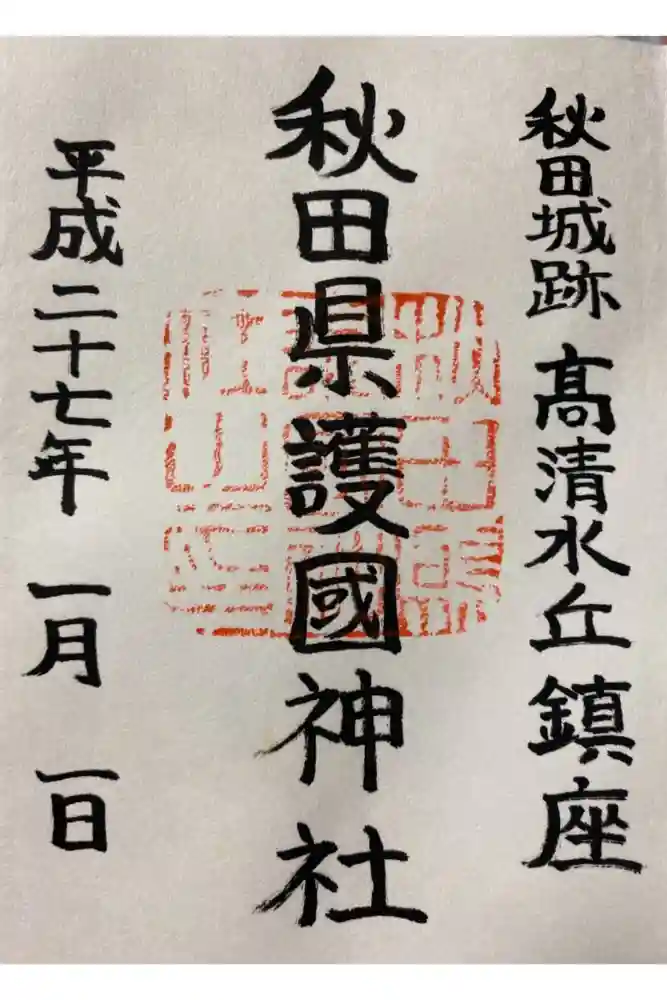 秋田城跡 髙清水丘鎮座
秋田県護國神社
平成二十七年 一月 一日